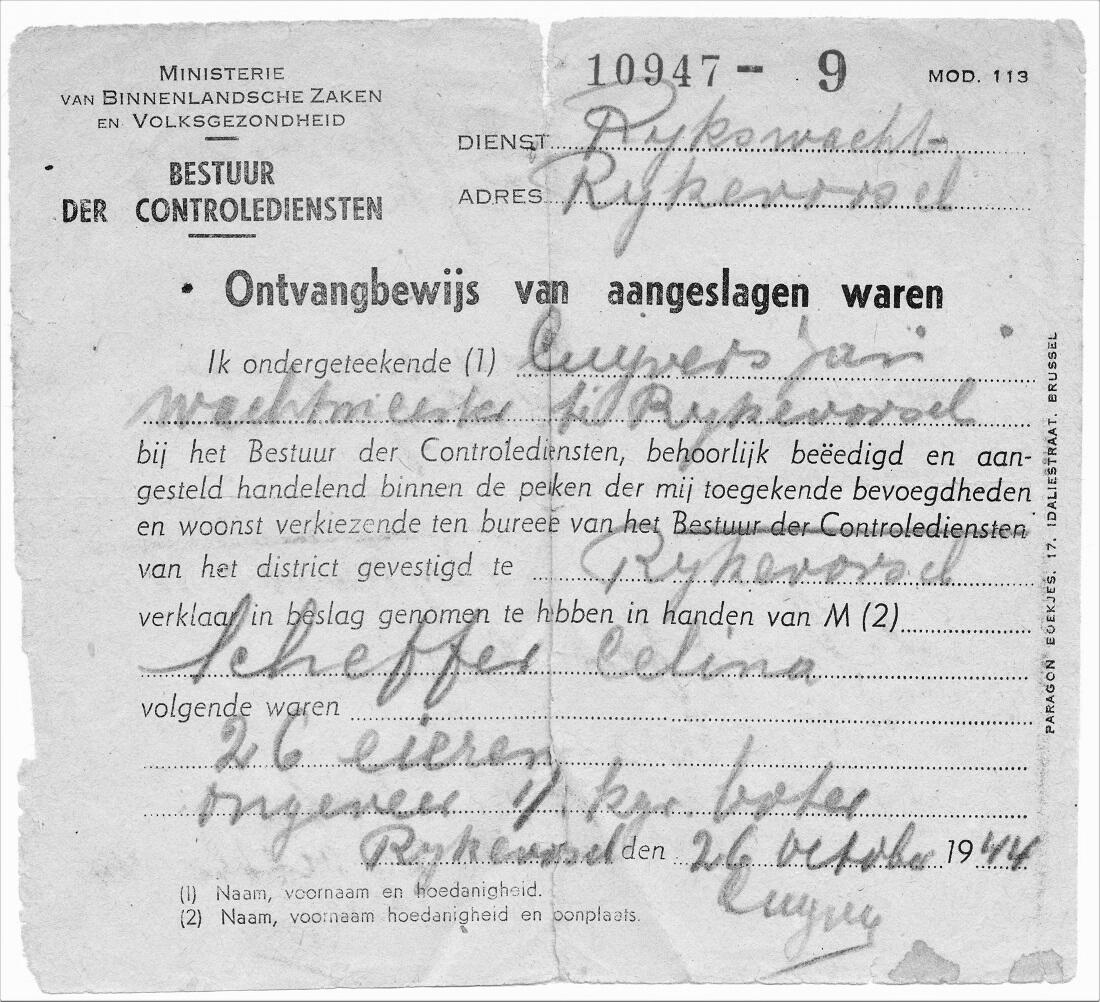 MINISTERIE
VAN BINNENLANDSCHE ZAKEN
EN VOLKSGEZONDHEID
BESTUUR
DER CONTROLEDIENSTEN
10947 - 9
MOD. 113
DIENST Rykswacht
ADRES Rykevorsel
Ontvangbewijs van aangeslagen waren
Ik ondergeteekende (1) Cuyvers Jan
wachtmeester te Rykevorsel
bij het Bestuur der Controlediensten, behoorlijk beëedigd en aan-
gesteld handelend binnen de perken der mij toegekende bevoegdheden
en woonst verkiezende ten bureele van het Bestuur der Controlediensten
van het district gevestigd te Rykevorsel
verklaar in beslag genomen te hebben in handen van M (2)
Scheffer Celina
volgende waren
26 eieren
ongeveer 1/ kgr. boter
Rykevorsel den 26 October 1944
Cuyvers
(1) Naam, voornaam en hoedanigheid.
(2) Naam, voornaam hoedanigheid en oonplaats.
PARAGON BOEKJES, 17, IDALIESTRAAT. BRUSSEL